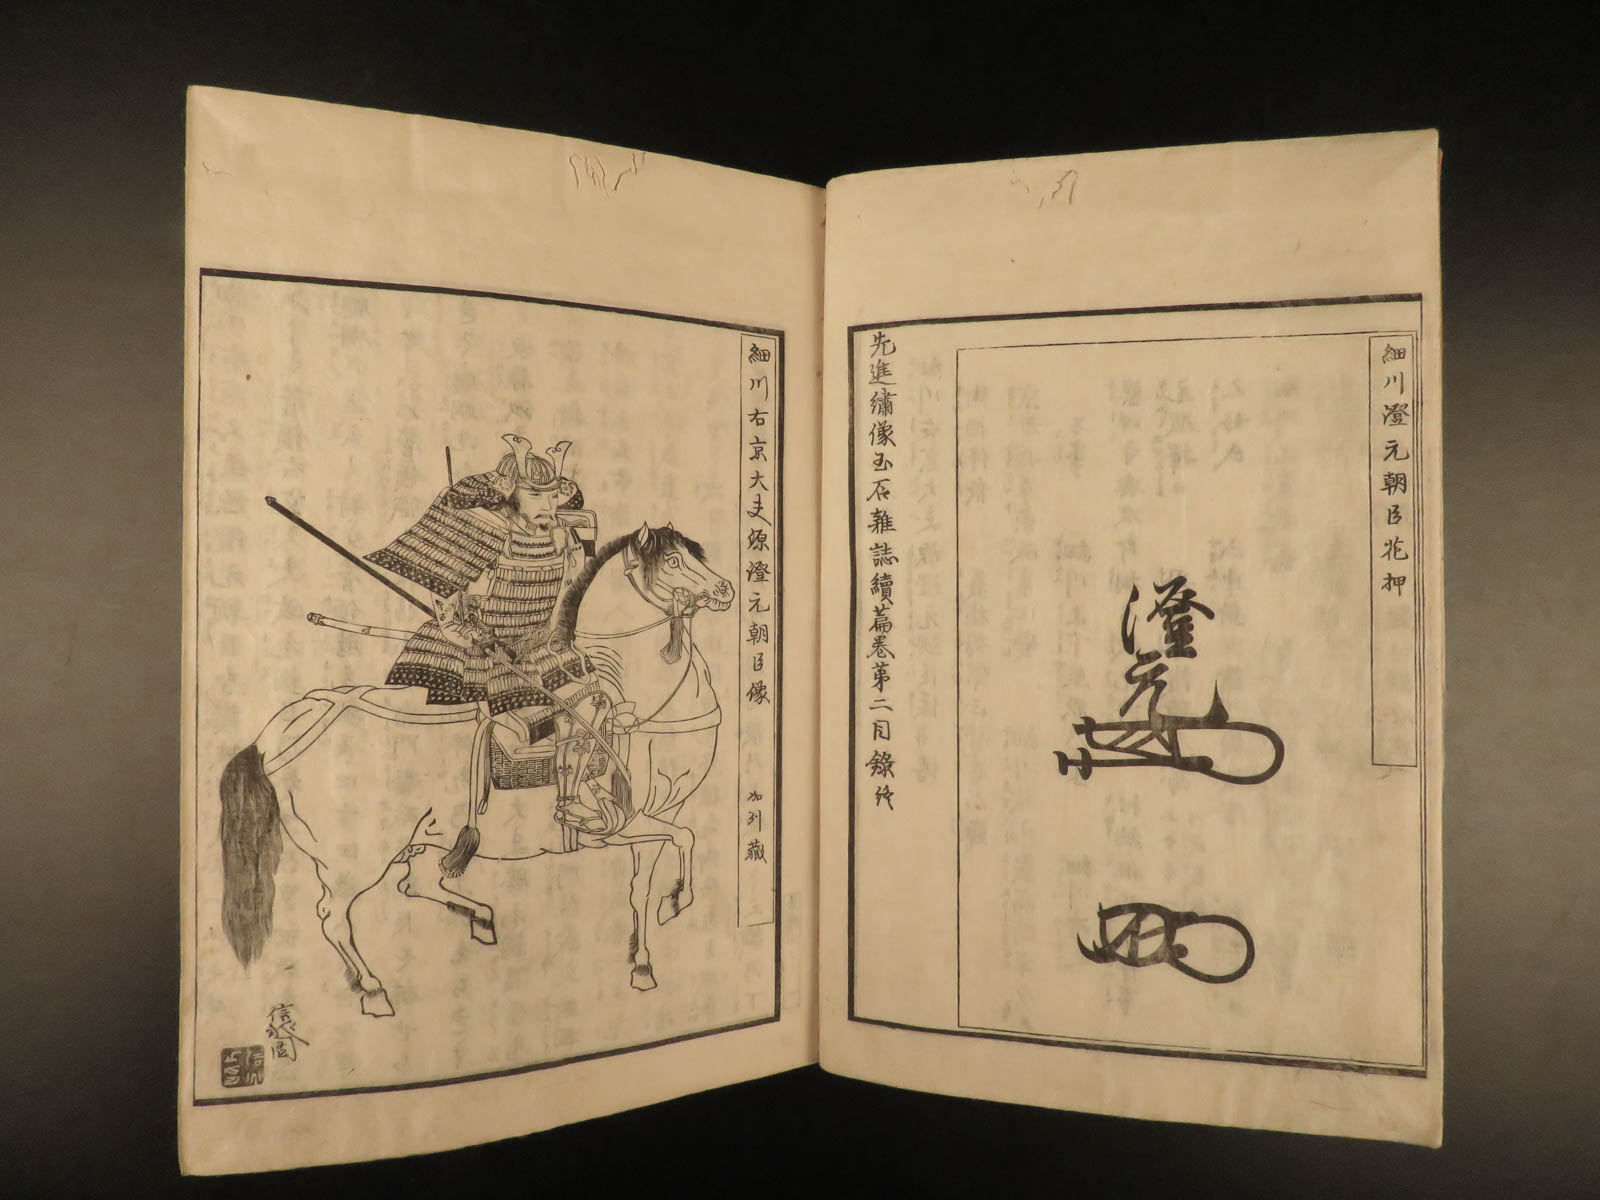 細川澄元朝臣花押
澄元
先進繍像玉石雜誌續篇卷第二目錄終
細川右京大夫源澄元朝臣像
加州藏